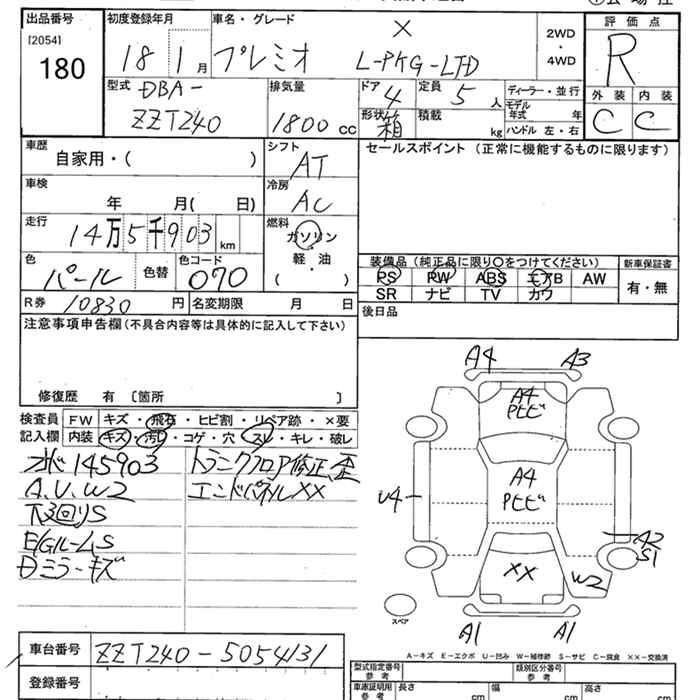 出品番号 初度登録年月 車名・グレード 評価点
[2054] 180 18 1月 プレミオ X L-PKG-LTD 2WD・4WD R
外装 内装
C C
型式 DBA- ZZT240 排気量 1800cc ドア 4 定員 5人 ディーラー・並行
形状 箱 積載 kg モデル年式 年 ハンドル 左・右
車歴 自家用・( ) シフト AT セールスポイント(正常に機能するものに限ります)
車検 年 月( 日) 冷房 AC
走行 14万5千903km 燃料 ガソリン・軽油 ( )
色 パール 色替 色コード 070
装備品(純正品に限り○をつけてください) 新車保証書
PS PW ABS エアB AW 有・無
SR ナビ TV カワ
R券 10830円 名変期限 月 日 後日品
注意事項申告欄(不具合内容等は具体的に記入して下さい)
修復歴 有 [箇所 ]
検査員 FW キズ・飛石・ヒビ割・リペア跡・×要
記入欄 内装 キズ・汚れ・コゲ・穴・スレ・キレ・破レ
オド145903 トランクフロア修正、歪
A.U.W2 エンドパネルXX
下廻りS
E/GルームS
Dミラーキズ
A4 A3
A4
トビヒビ
U4 A4
トビヒビ
A2
S1
XX W2
スペア
A1 A1
A-キズ E-エクボ U-凹み W-補修跡 S-サビ C-腐食 ××-交換済
車台番号 ZZT240-5054131
登録番号
型式指定番号 参考 類別区分番号 参考
車庫証明用 参考 長さ cm 幅 cm 高さ cm